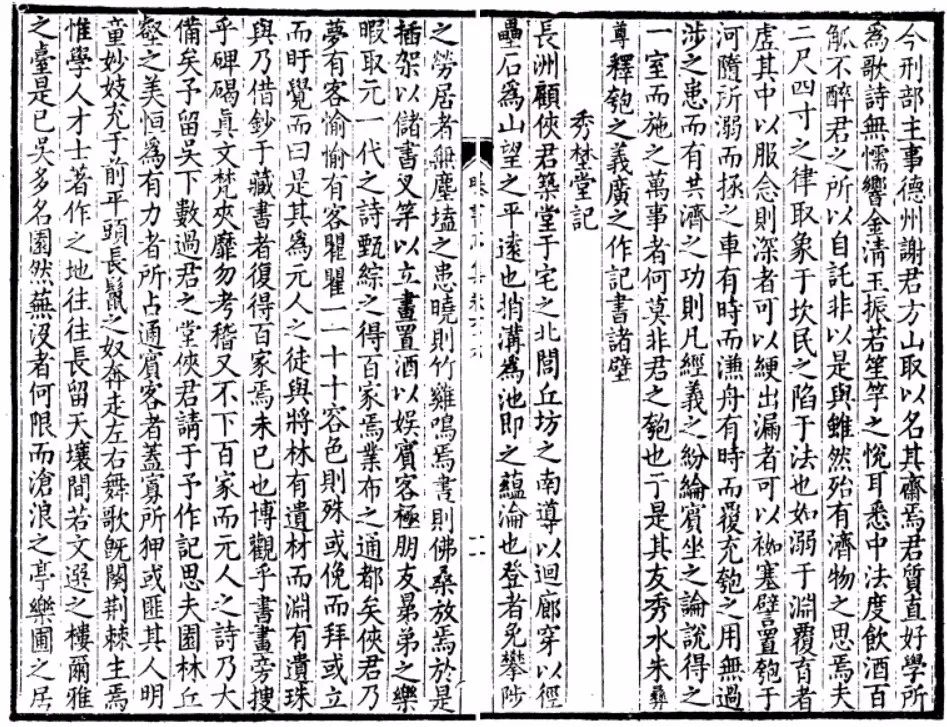 今刑部主事德州謝君方山取以名其齋焉君質直好學所
為歌詩無懦響金淸玉振若笙竽之悅耳悉中法度飲酒百
觚不醉君之所以自託非以是與雖然殆有濟物之思焉夫
二尺四寸之律取象于坎民之陷于法也如溺于淵覆盲者
虛其中以服念則深者可以綆出漏者可以袽塞譬置匏于
河隨所溺而拯之車有時而濂舟有時而覆充匏之用無過
涉之患而有共濟之功則凡經義之紛綸賓坐之論說得之
一室而施之萬事者何莫非君之匏也亍是其友秀水朱彝
尊釋匏之義廣之作記書諸壁
秀埜堂記
長洲顧俠君築堂于宅之北閭丘坊之南導以迴廊穿以徑
壘石為山望之平遠也捎溝為池即之蘊淪也登者免攀陟
之勞居者無塵壒之患曉則竹雞鳴焉晝則佛桑放焉於是
插架以儲書叉竿以立畫置酒以娛賓客極朋友昴弟之樂
暇取元一代之詩甄綜之得百家焉業布之通都矣俠君乃
夢有客愉愉有客瞿瞿一一十十容色則殊或俛而拜或立
而盱覺而曰是其為元人之徒與將林有遺材而淵有遺珠
與乃借鈔于藏書者復得百家焉未已也博觀乎書畫旁搜
乎碑碣眞文梵夾靡勿考稽又不下百家而元人之詩乃大
備矣予留吳下數過君之堂俠君請于予作記思夫園林丘
壑之美恒為有力者所占通賓客者蓋寡所狎或匪其人明
童妙妓充于前平頭長鬣之奴奔走左右舞歌旣闋荆棘生焉
惟學人才士著作之地往往長留天壤間若文選之樓爾雅
之臺是已吳多名園然蕪沒者何限而滄浪之亭樂圃之居